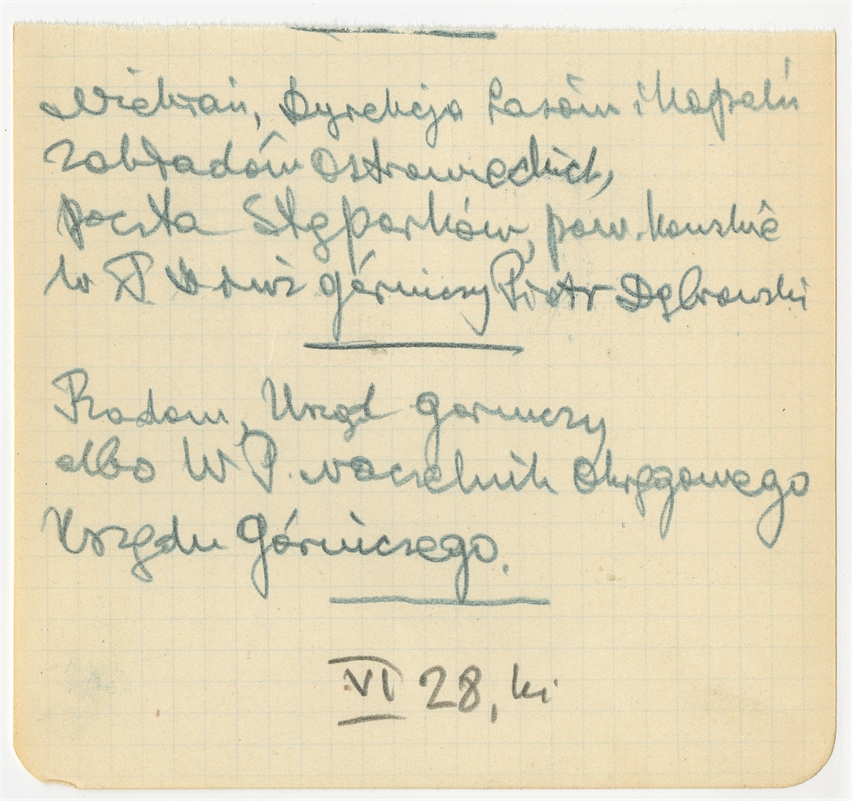 Niekłań, Dyrekcja Lasów i Kopalń
Zakładów Ostrowieckich,
poczta Stąporków, pow. Końskie
W P górniczy Piotr Dąbrowski
Radom, Urząd Gorniczy
albo W P. Naczelnik Okręgowego
Urzędu Górniczego.
VI 28, ki